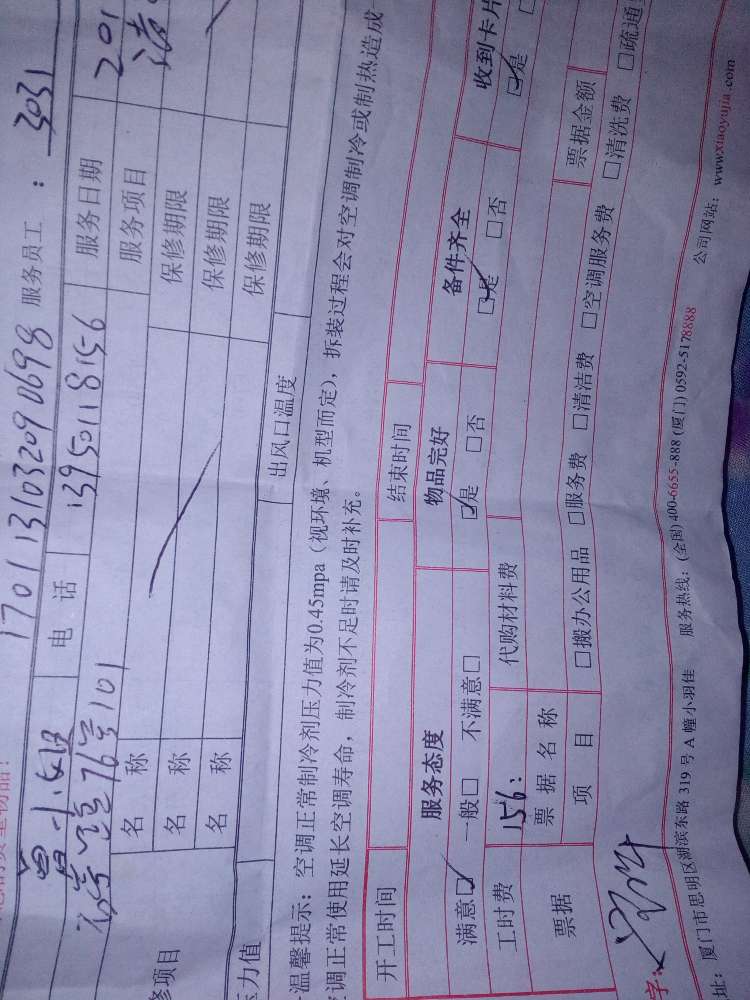 的贵重物品!
1701 131032090698 服务员工 : 3031
曾小姐 电 话 13950118156 服务日期 201
76号101 服务项目 清
名 称 保修期限
名 称 保修期限
修项目 名 称 保修期限
压力值 出风口温度
温馨提示: 空调正常制冷剂压力值为0.45mpa (视环境、机型而定), 拆装过程会对空调制冷或制热造成
调正常使用延长空调寿命, 制冷剂不足时请及时补充。
开工时间 结束时间
服务态度 物品完好 备件齐全 收到卡片
满意☑ 一般□ 不满意□ ☑是 □否 ☑是 □否 ☑是
工时费 156: 代购材料费
票据 票 据 名 称 票据金额
项 目 □搬办公用品 □服务费 □清洁费 □空调服务费 □清洗费 □疏通
字:
址: 厦门市思明区湖滨东路 319 号 A 幢小羽佳 服务热线: (全国) 400-6655-888 (厦门) 0592-5178888 公司网站: www.xiaoyujia.com